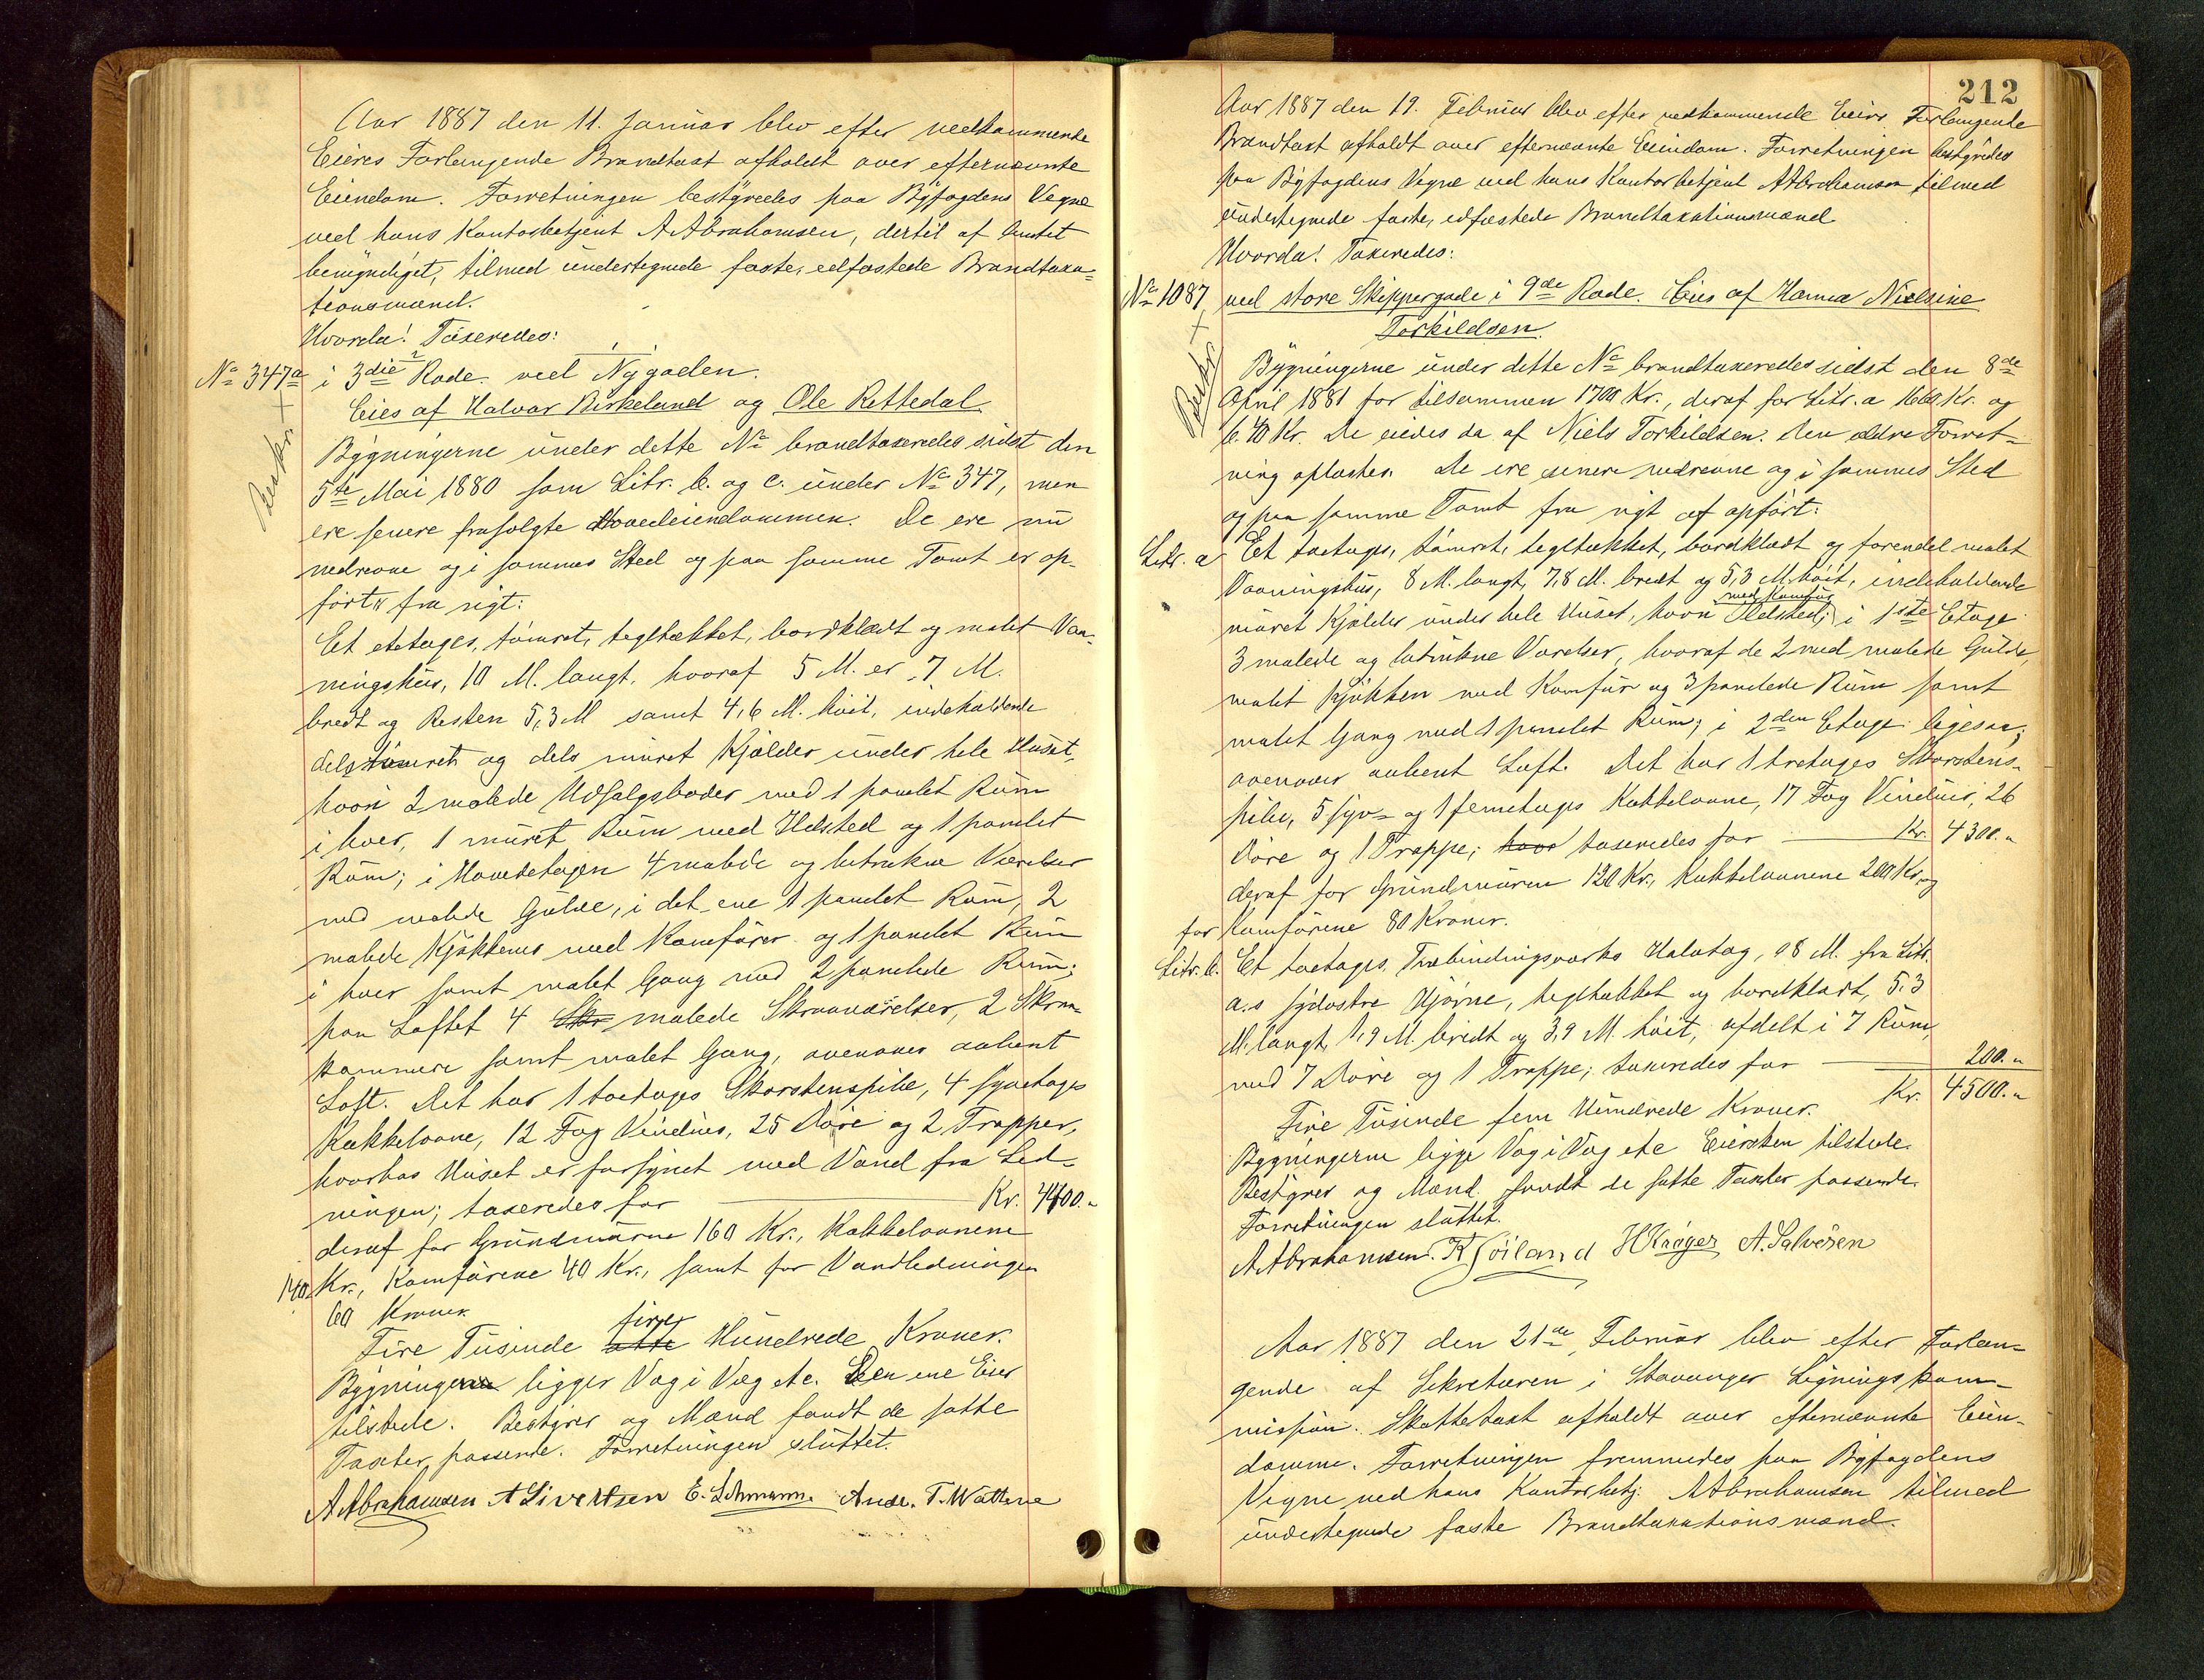 Aar 1887 den 11. Januar blev efter vedkommende
Eieres Forlangende Brandtaxt afholdt over efternævnte
Eiendom. Forretningen bestyredes paa Byfogdens Vegne
ved hans Kontorbetjent A Abrahamsen, dertil af Amtet
bemyndiget, tilmed undertegnede faste, edfæstede Brandtaxa=
tionsmænd.
Hvorda! Taxeredes:
No 347a i 3die Rode. ved Nygaden.
Eies af Halvor Birkeland og Ole Rettedal
Beskr. +
Bygningerne under dette No brandtaxeredes sidst den
5te Mai 1880 som Litr. b. og c. under No 347, men
ere senere frasolgte Hovedeiendommen. De ere nu
nedrevne og i sammes Sted og paa samme Tomt er op-
ført fra nyt:
Et etetages, tømret, tegltækket, bordklædt og malet Vaa-
ningshus, 10 M. langt, hvoraf 5 M. er 7 M.
bredt og Resten 5,3 M samt 4,6 M. høit, indeholdende
dels tømret og dels muret Kjælder under hele Huset,
hvori 2 malede Udsalgsboder med 1 panelet Rum
i hver, 1 muret Rum med Ildsted og 1 panelet
Rum; i Hovedetagen 4 malede og betrukne Værelser
med malede Gulve, i det ene 1 panelet Rum, 2
malede Kjøkkener med Komfurer og 1 panelet Rum
i hver samt malet Gang med 2 panelede Rum;
paa Loftet 4 Skr malede Skraaværelser, 2 Skraa-
kammere samt malet Gang, ovenover aabent
Loft. Det har 1 toetages Skorstenspibe, 4 syvetages
Kakkelovne, 12 Fag Vinduer, 25 Døre og 2 Trapper,
hvorhos Huset er forsynet med Vand fra Led-
ningen; taxeredes for Kr. 4400.„
deraf for Grundmurene 160 Kr., Kakkelovnene
140 Kr., Komfurene 40 Kr., samt for Vandledningen
60 Kroner.
Fire Tusinde otte fire Hundrede Kroner.
Bygningerne ligger Væg i Væg etc. Den ene Eier
tilstede. Bestyrer og Mænd fandt de satte
Taxter passende. Forretningen sluttet.
A Abrahamsen A Sivertsen E. Lehmann. Andr. T. Watlene
212
Aar 1887 den 19. Februar blev efter vedkommende Eiers Forlangende
Brandtaxt afholdt over efternævnte Eiendom. Forretningen bestyredes
paa Byfogdens Vegne ved hans Kontorbetjent A Abrahamsen tilmed
undertegnede faste, edfæstede Brandtaxationsmænd
Hvorda! Taxeredes:
No 1087, ved store Skippergade i 9de Rode. Eies af Hanna Nielsine
Torkildsen.
Beskr. +
Bygningerne under dette No brandtaxeredes sidst den 8de
April 1881 for tilsammen 1700 Kr., deraf for Litr. a 1660 Kr. og
b. 40 Kr. De eiedes da af Niels Torkildsen. Den ældre Forret-
ning oplæstes. De ere senere nedrevne og i sammes Sted
og paa samme Tomt fra nyt af opført:
Litr. a Et toetages, tømret, tegltækket, bordklædt og forendel malet
Vaaningshus, 8 M. langt, 7,8 M. bredt og 5,3 M. høit, indeholdende
muret Kjælder under hele Huset, hvori Ildsted med Komfur; i 1ste Etage
3 malede og betrukne Værelser, hvoraf de 2 med malede Gulve,
malet Kjøkken med Komfur og 3 panelede Rum samt
malet Gang med 1 panelet Rum; i 2den Etage ligesaa;
ovenover aabent Loft. Det har 1 tretages Skorstens-
pibe, 5 syv- og 1 femetages Kakkelovne, 17 Fag Vinduer, 26
Døre og 1 Trappe; hvor taxeredes for Kr. 4300.„
deraf for Grundmuren 120 Kr., Kakkelovnene 200 Kr. og
for Komfurene 80 Kroner.
Litr. b. Et toetages Træbindingsværks Halvtag, 0,8 M. fra Litr.
a.s sydøstre Hjørne, tegltækket og bordklædt, 5,3
M. langt, 1,9 M. bredt og 3,9 M. høit, afdelt i 7 Rum,
med 7 Døre og 1 Trappe; taxeredes for 200.„
Kr. 4500.„
Fire Tusinde fem Hundrede Kroner.
Bygningerne ligge Væg i Væg etc Eiersken tilstede.
Bestyrer og Mænd fandt de satte Taxter passende.
Forretningen sluttet.
A Abrahamsen. K Soiland H Krøger A. Salvesen
Aar 1887 den 21de Februar blev efter Forlan=
gende af Sekretæren i Stavanger Ligningskom-
mission Skattetaxt afholdt over efternævnte Eien-
domme. Forretningen fremmedes paa Byfogdens
Vegne ved hans Kontorbetj. A Abrahamsen tilmed
undertegnede faste Brandtaxationsmænd.